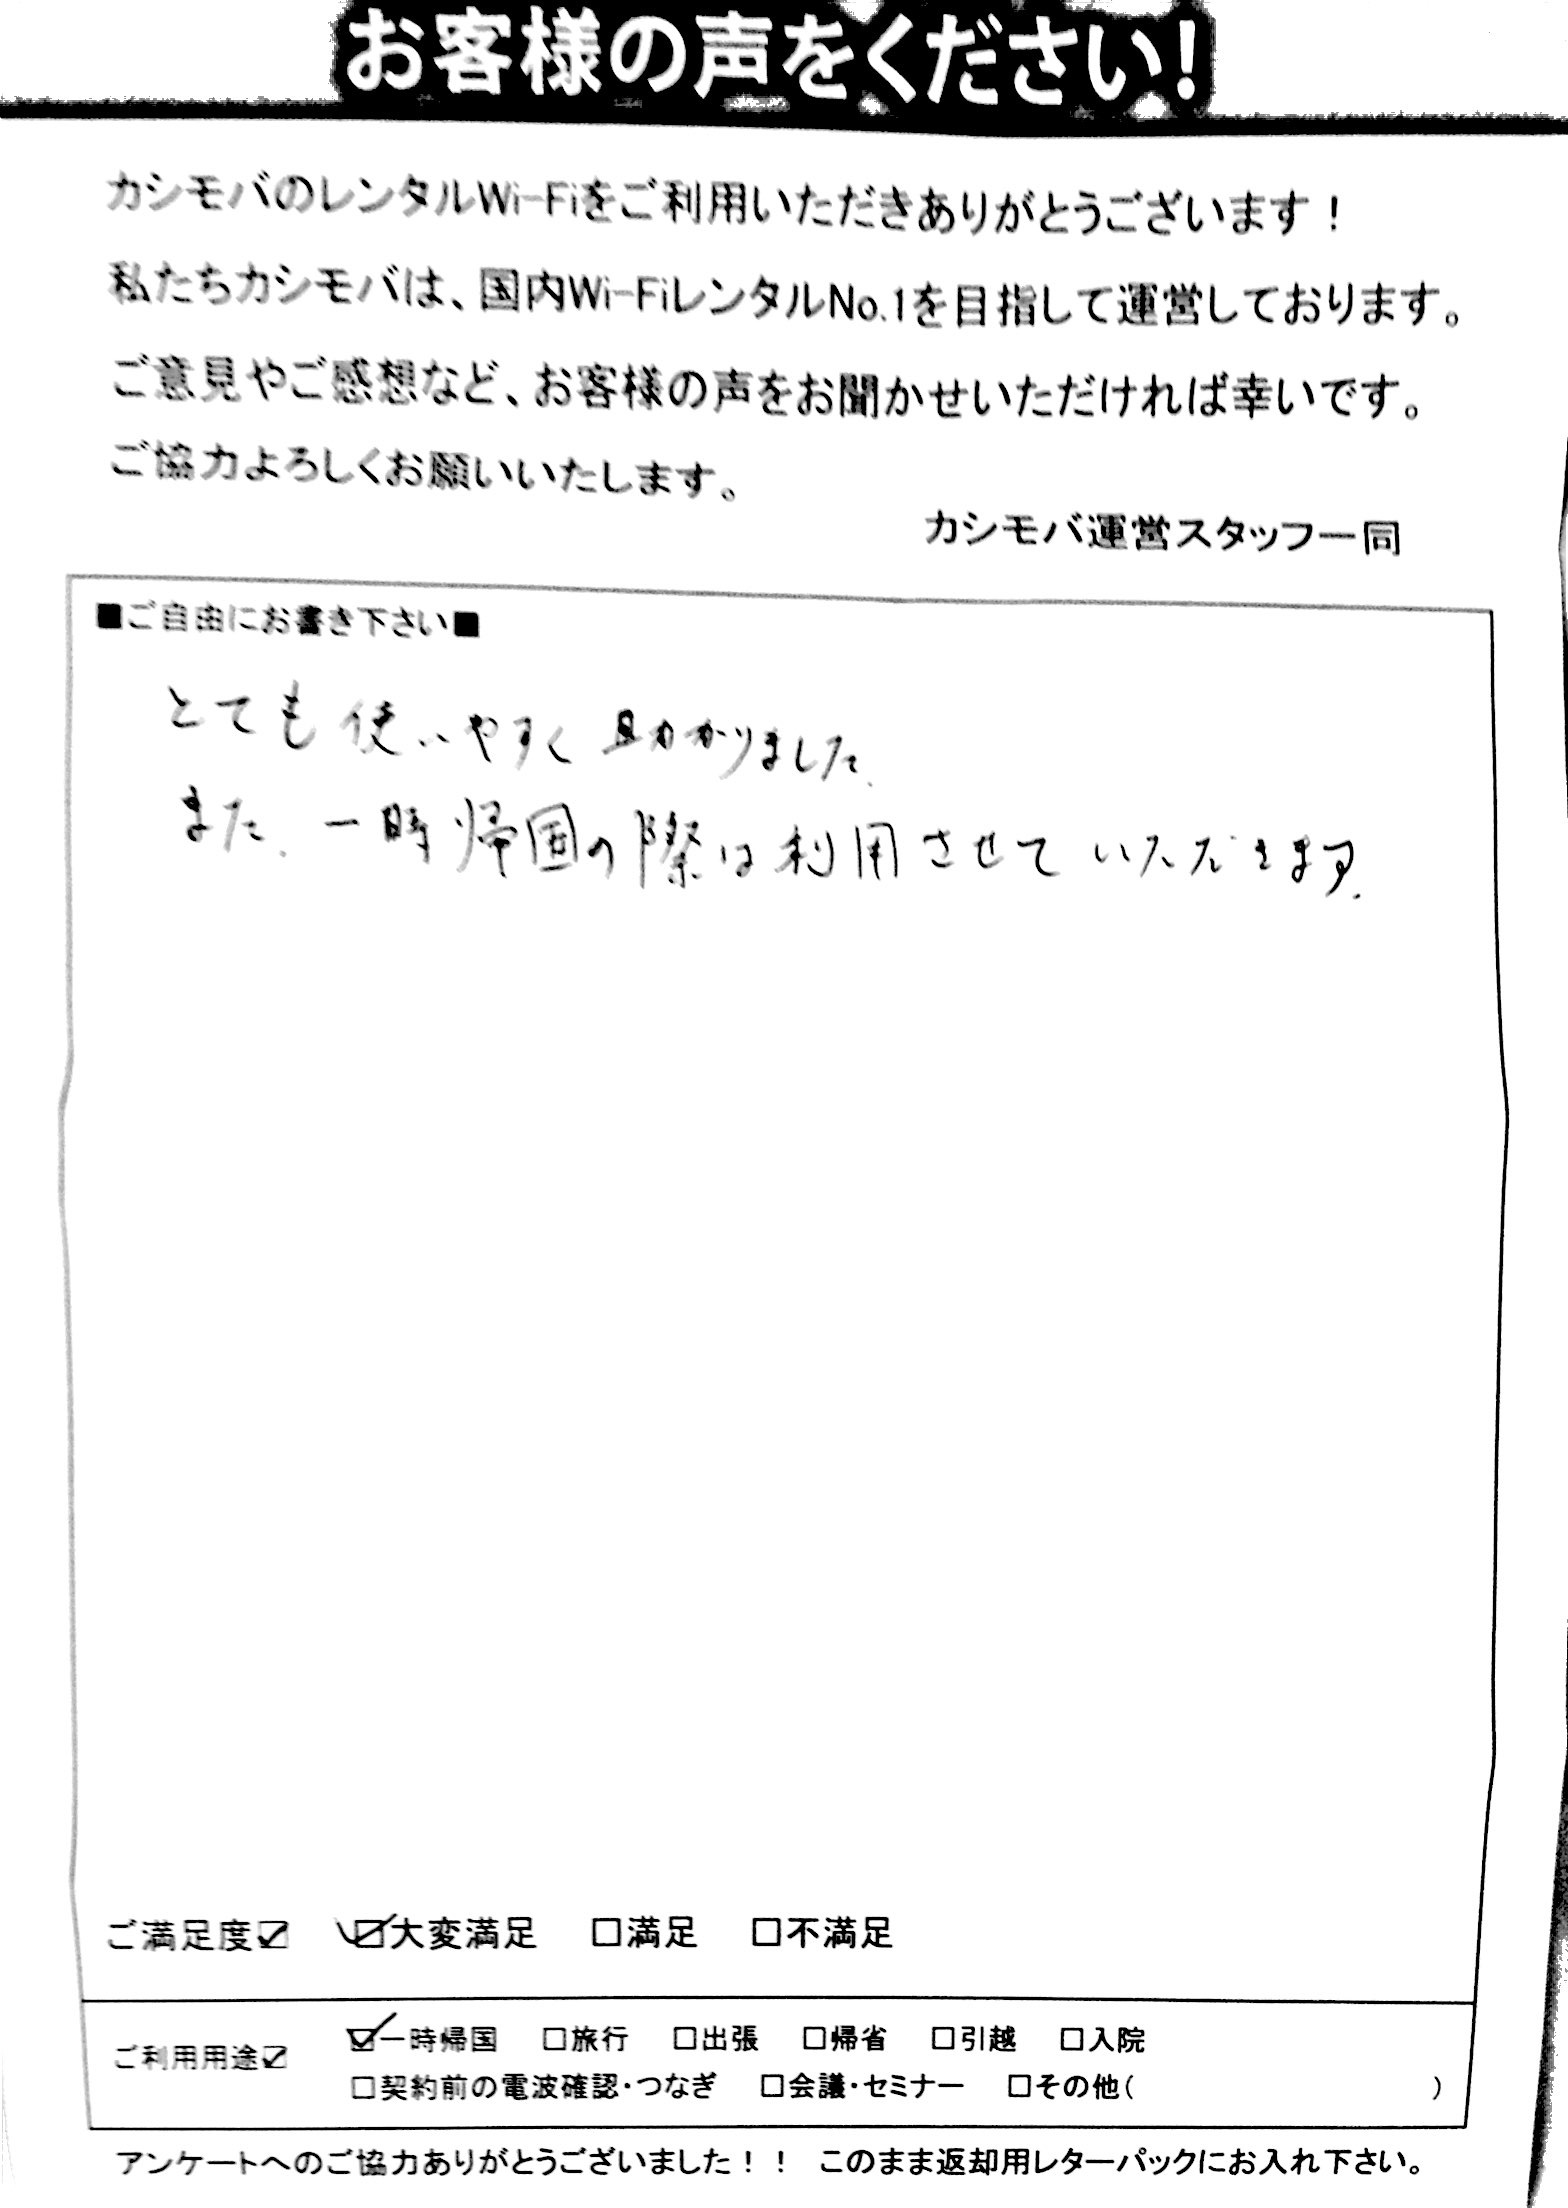 お客様の声をください!
カシモバのレンタルWi-Fiをご利用いただきありがとうございます!
私たちカシモバは、国内Wi-FiレンタルNo.1を目指して運営しております。
ご意見やご感想など、お客様の声をお聞かせいただければ幸いです。
ご協力よろしくお願いいたします。
カシモバ運営スタッフ一同
■ご自由にお書き下さい■
とても使いやすく助かりました.
また、一時帰国の際は利用させていただきます.
ご満足度☑ ☑大変満足 □満足 □不満足
☑一時帰国 □旅行 □出張 □帰省 □引越 □入院
ご利用用途☑
□契約前の電波確認・つなぎ □会議・セミナー □その他( )
アンケートへのご協力ありがとうございました!! このまま返却用レターパックにお入れ下さい。